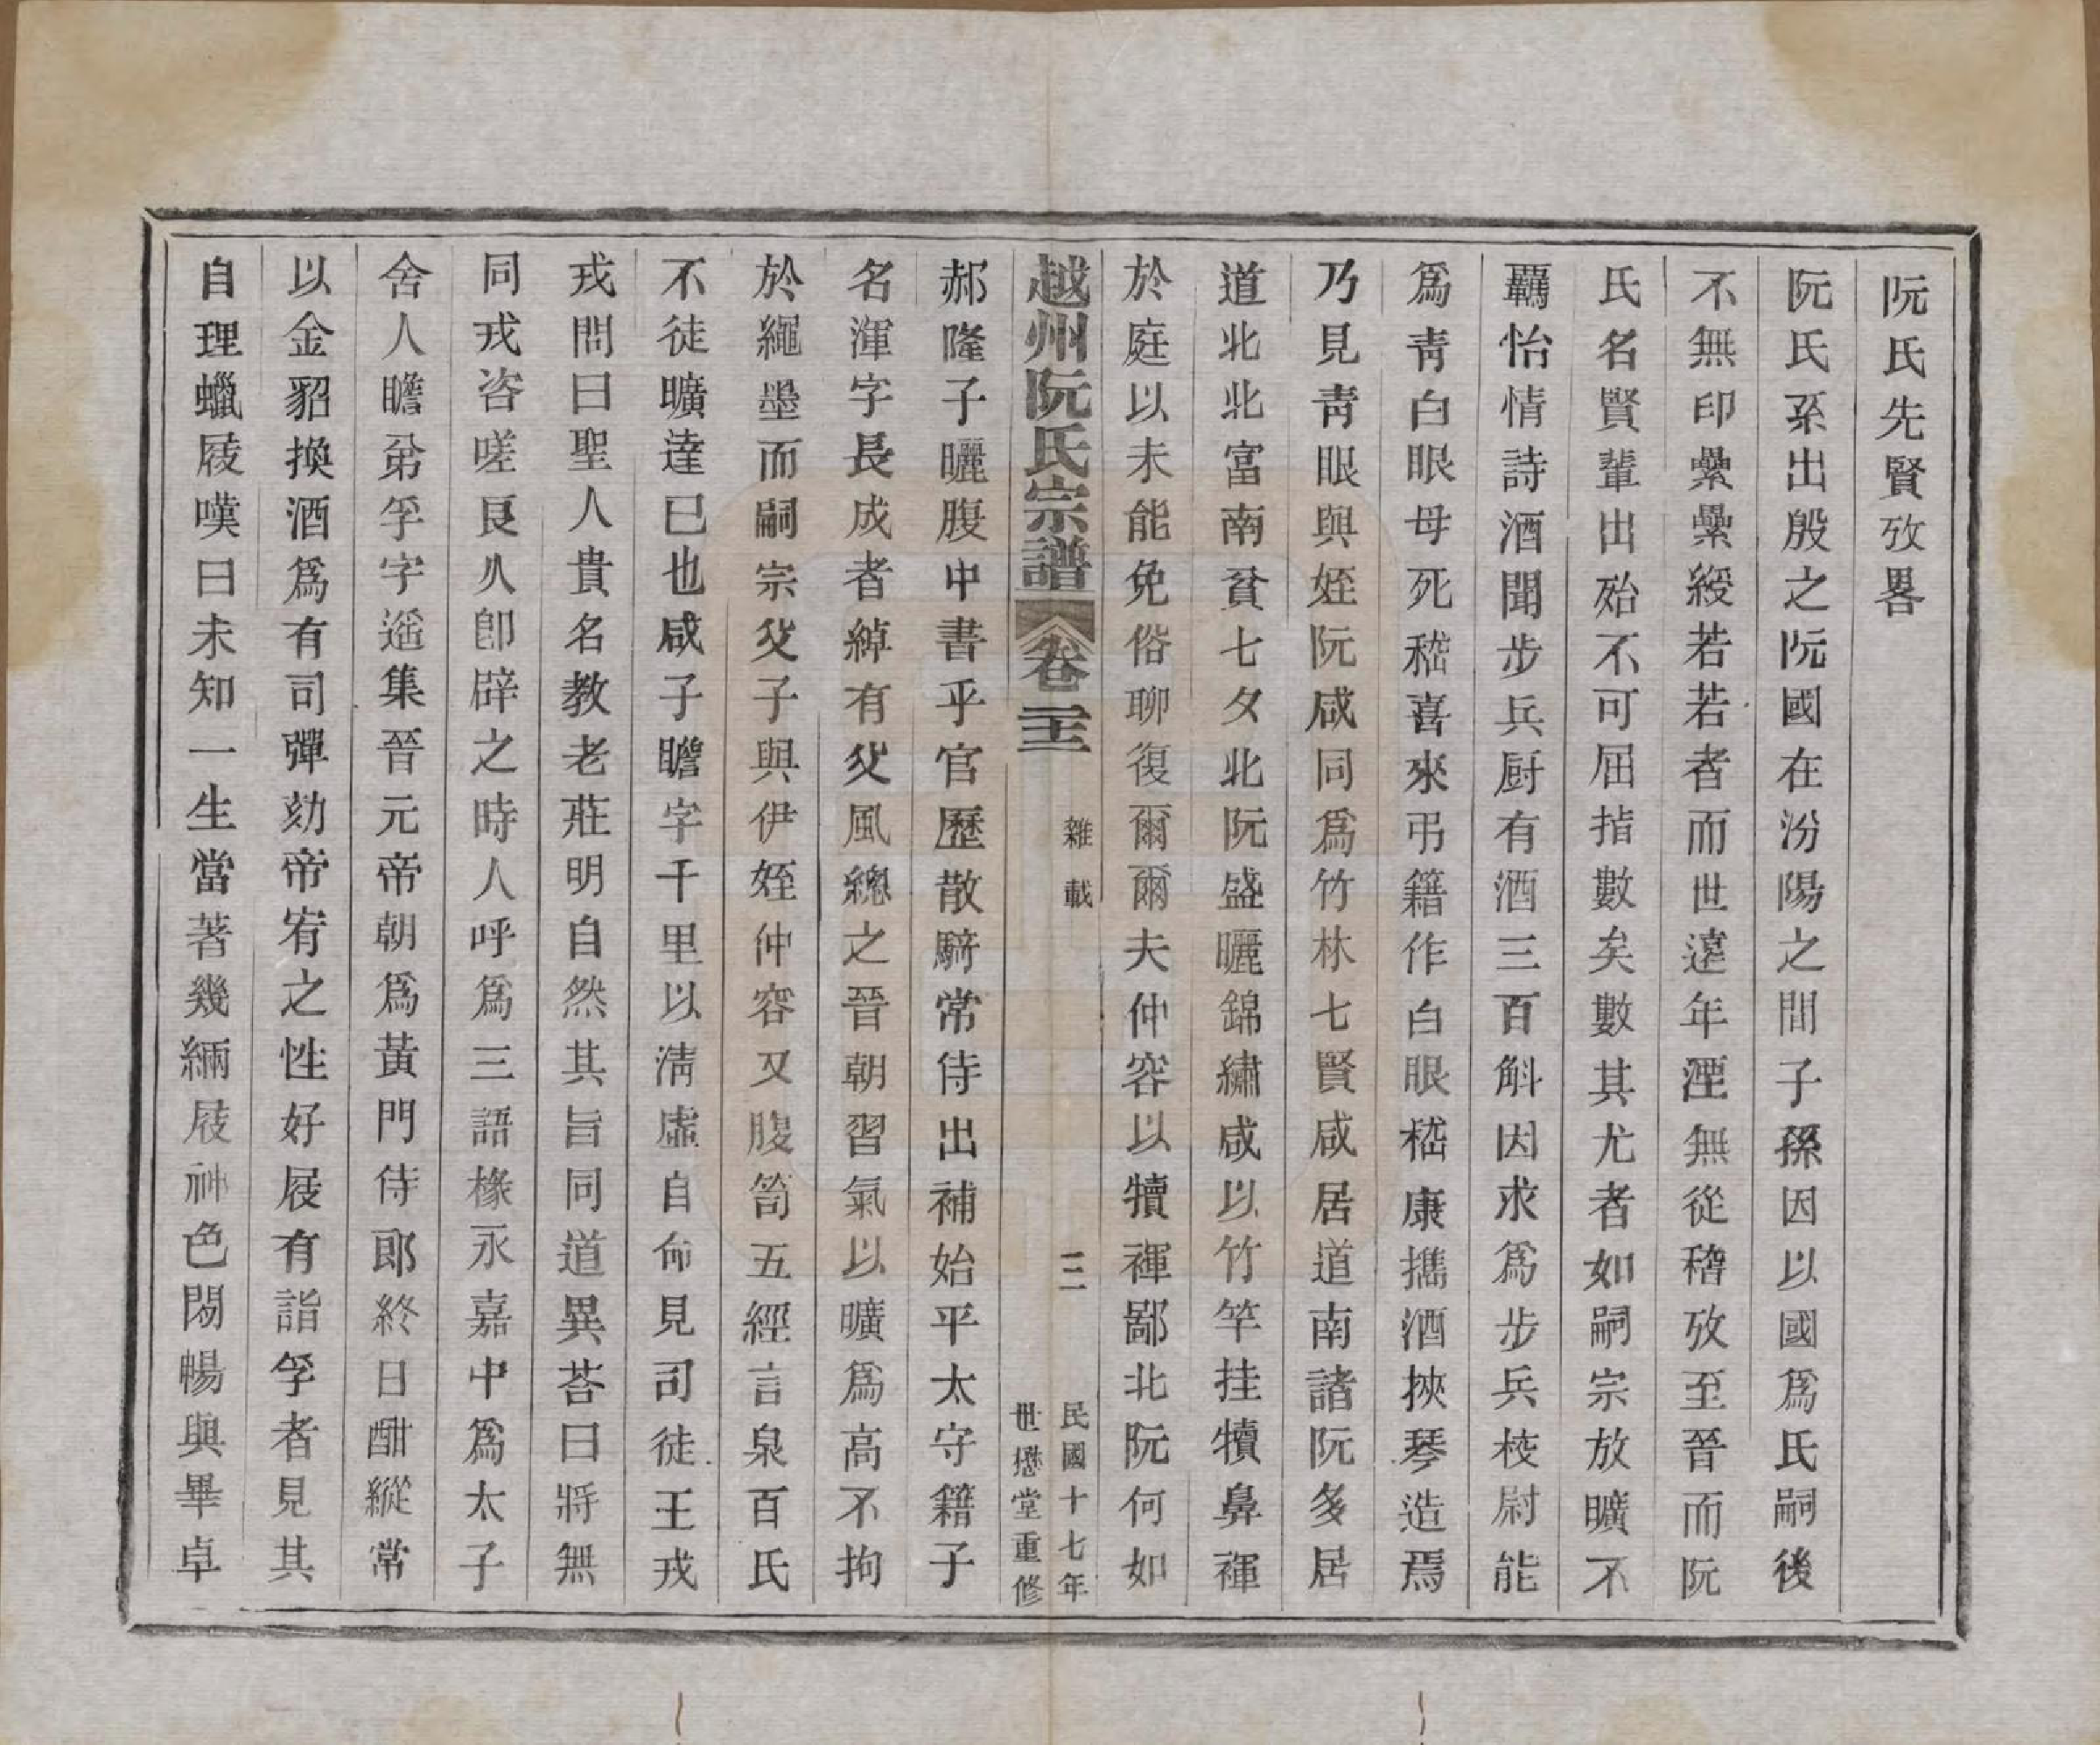 阮氏先賢攷畧
阮氏系出殷之阮國在汾陽之間子孫因以國爲氏嗣後
不無印纍纍綬若若者而世遠年湮無從稽攷至晉而阮
氏名賢輩出殆不可屈指數矣數其尤者如嗣宗放曠不
羈怡情詩酒聞步兵厨有酒三百斛因求爲步兵校尉能
爲靑白眼母死嵇喜來弔籍作白眼嵇康攜酒挾琴造焉
乃見靑眼與姪阮咸同爲竹林七賢咸居道南諸阮多居
道北北富南貧七夕北阮盛曬錦繡咸以竹竿挂犢鼻褌
於庭以未能免俗聊復爾爾夫仲容以犢褌鄙北阮何如
越州阮氏宗譜 卷二十二 雜載 三 民國十七年 世懋堂重修
郝隆子曬腹中書乎官歷散騎常侍出補始平太守籍子
名渾字長成者綽有父風總之晉朝習氣以曠爲高不拘
於繩墨而嗣宗父子與伊姪仲容又腹笥五經言泉百氏
不徒曠達已也咸子瞻字千里以淸虛自命見司徒王戎
戎問曰聖人貴名教老莊明自然其旨同道異荅曰將無
同戎咨嗟良久卽辟之時人呼爲三語椽永嘉中爲太子
舍人瞻弟孚字遥集晉元帝朝爲黃門侍郎終日酣縱常
以金貂換酒爲有司彈劾帝宥之性好屐有詣孚者見其
自理蠟屐嘆曰未知一生當著幾緉屐神色閑暢與畢卓